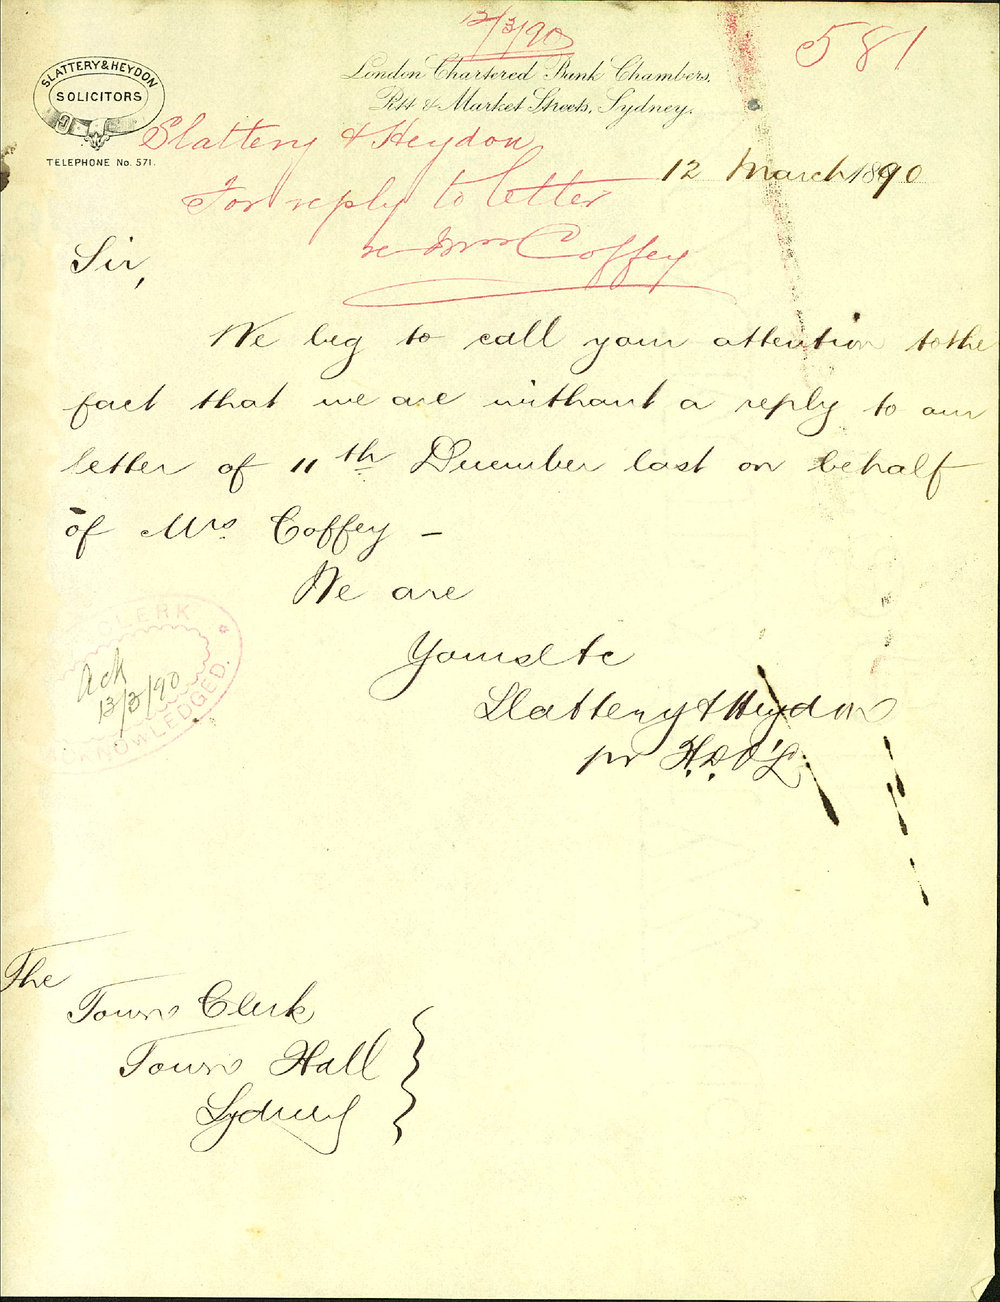 12/3/90
581
SLATTERY & HEYDON
SOLICITORS
TELEPHONE No. 571.
London Chartered Bank Chambers,
Pitt & Market Streets, Sydney.
Slattery & Heydon
For reply to letter
re Mrs Coffey
12 March 1890
Sir,
We beg to call your attention to the
fact that we are without a reply to our
letter of 11th December last on behalf
of Mrs. Coffey –
We are
Yours etc
Slattery & Heydon
pr H.D.O'L
CLERK
Ack
13/3/90
ACKNOWLEDGED.
The
Town Clerk
Town Hall
Sydney